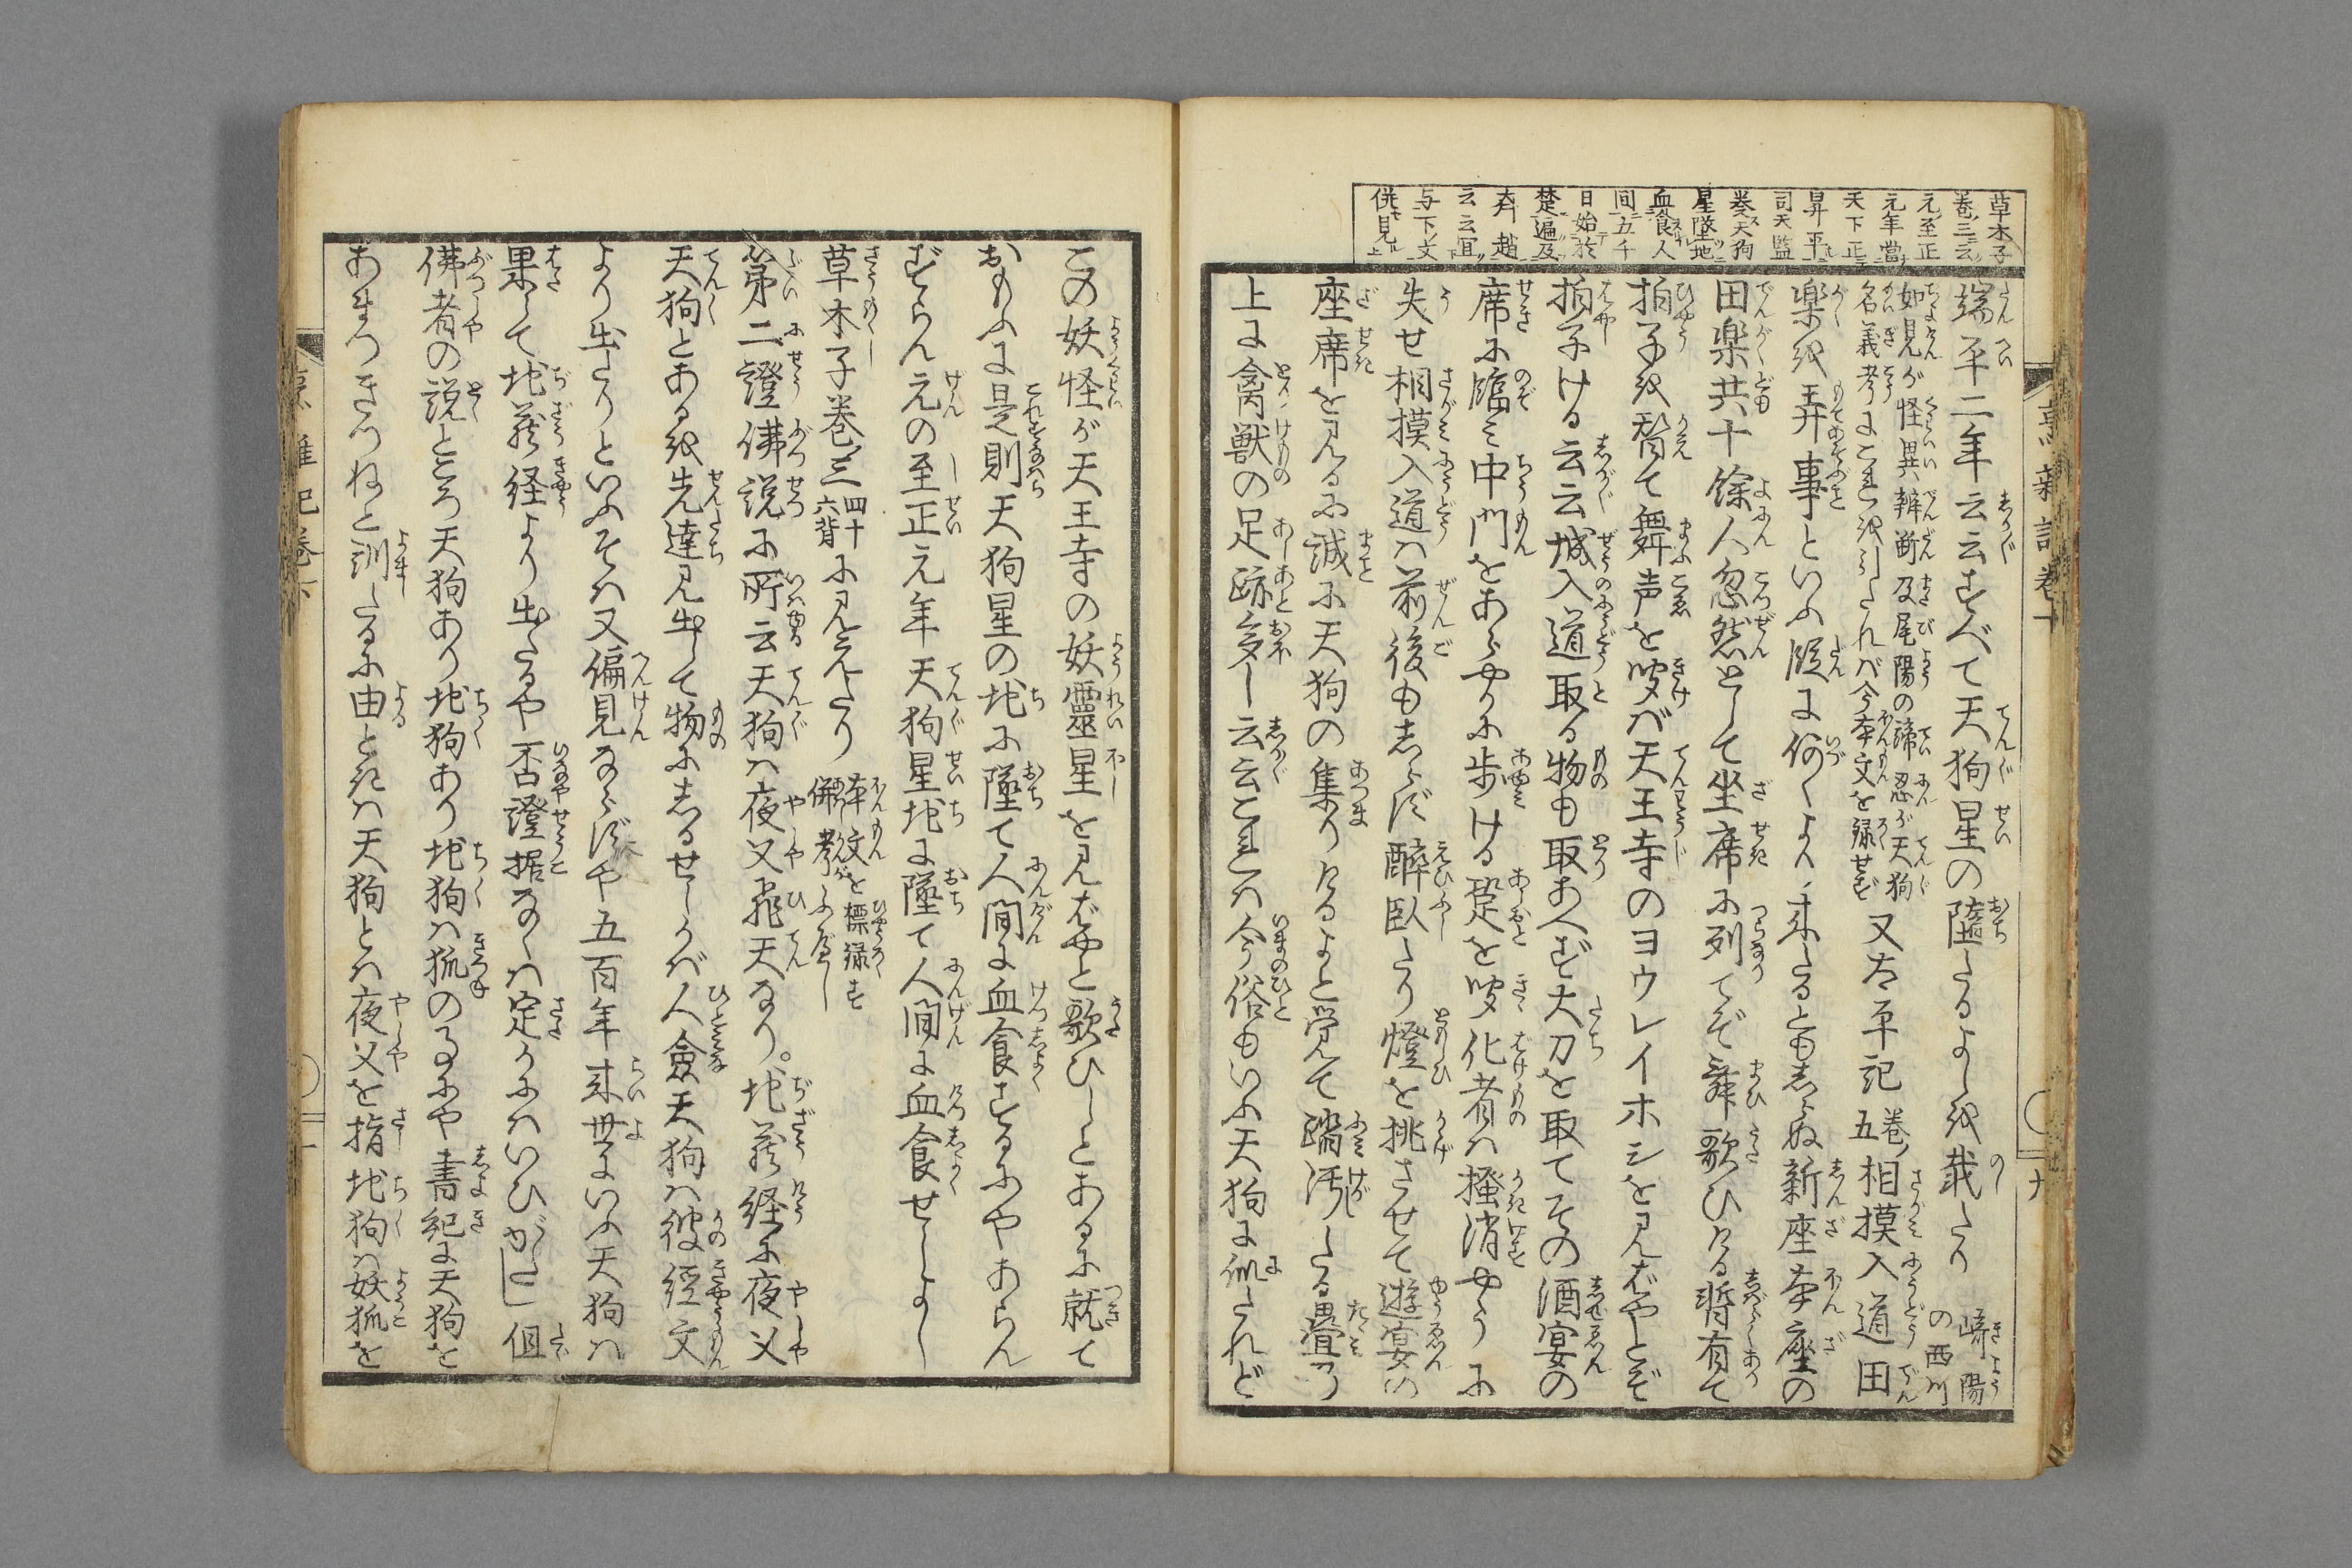 草木子
巻三云
元至正
元年當
天下正
昇平
司天監
奏天狗
星墜地
血食人
間五千
日始於
楚遍及
斉趙
云云宜
与下文
併見
端平二年云云すべて天狗星の隨たるよしを載たり 崎陽の西川
如見が怪異辨断及尾陽の諦忍が天狗
名義考にこれを引たれば今本文を録せず 又太平記巻五相摸入道田
楽を弄事といふ段に何くより来たるとも志らぬ新座本座の
田楽共十餘人忽然として坐席に列てぞ舞歌ひける暫有て
拍子を替て舞声を聞けば天王寺のヨウレイホシを見ばやとぞ
拍子ける云云城入道取る物も取あへず太刀を取てその酒宴の
席に臨み中門をあららかに歩ける跫を聞化者は掻消やうに
失せ相摸入道は前後も志らず醉臥たり燈を挑させて遊宴の
座席を見るに誠に天狗の集りけるよと覚て踏汚したる畳の
上に禽獣の足跡多し云云これは今俗もいふ天狗に似たれど
この妖怪が天王寺の妖靈星を見ばやと歌ひしとあるに就て
おもふに是則天狗星の地に墜て人間に血食するにやあらん
ずらん元の至正元年天狗星地に墜て人間に血食せしよし
草木子巻三四十六背に見えたり 本文を標録す併考ふべし
第二證佛説に所云天狗は夜叉飛天なり。地蔵経に夜叉
天狗とある を先達見出して物に志るせしかば人僉天狗は彼經文
より出たりといふそは又偏見ならずや五百年来世にいふ天狗は
果して地蔵経より出たるや否證据なくは定かにはいひがたし 但
佛者の説ところ天狗あり地狗あり地狗は狐の事にや書紀に天狗を
あまつきつねと訓たるに由ときは天狗とは夜叉を指地狗は妖狐を